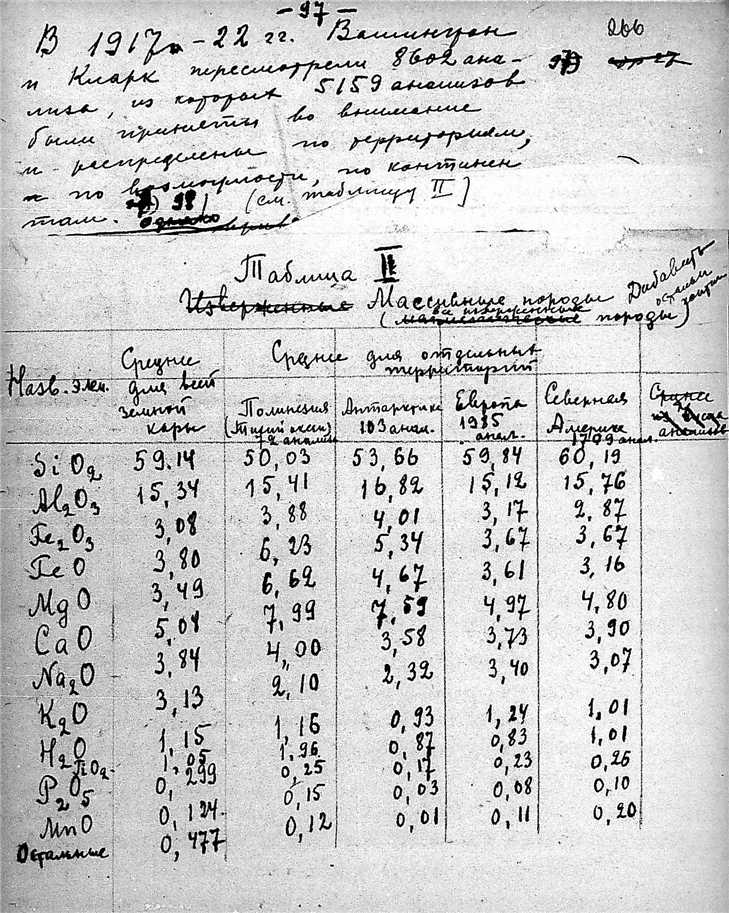 - 97 -
266
В 1917 - 22 гг. Вашингтон
и Кларк пересмотрели 8602 ана-
лиза, из которых 5159 анализов
были приняты во внимание
и распределены по территориям,
и по возможности, по континен
там. 98) (см. таблицу II]
однако
Таблица II
Изверженные Массивные породы
(все изверженные породы)
Добавить
Назв. элем.
Среднее для всей земной коры
Среднее для отдельных территорий
Полинезия (Тихий океан) 72 анализа
Антарктике 103 анал.
Европа 1985 анал.
Северная Америка 1709 анал.
Среднее из анализов
SiO2 59.14 50,03 53,66 59,84 60,19
Al2O3 15,34 15,41 16,82 15,12 15,76
Fe2O3 3,08 3,88 4,01 3,17 2,87
FeO 3,80 6,23 5,34 3,67 3,67
MgO 3,49 6,62 4,67 3,61 3,16
CaO 5,08 7,99 7,59 4,97 4,80
Na2O 3,84 4,00 3,58 3,73 3,90
K2O 3,13 2,10 2,32 3,40 3,07
H2O 1,15 1,16 0,93 1,24 1,01
TiO2 1,05 1,96 0,87 0,83 1,01
P2O5 0,299 0,25 0,17 0,23 0,26
MnO 0,124 0,15 0,03 0,08 0,10
Остальные 0,477 0,12 0,01 0,11 0,20